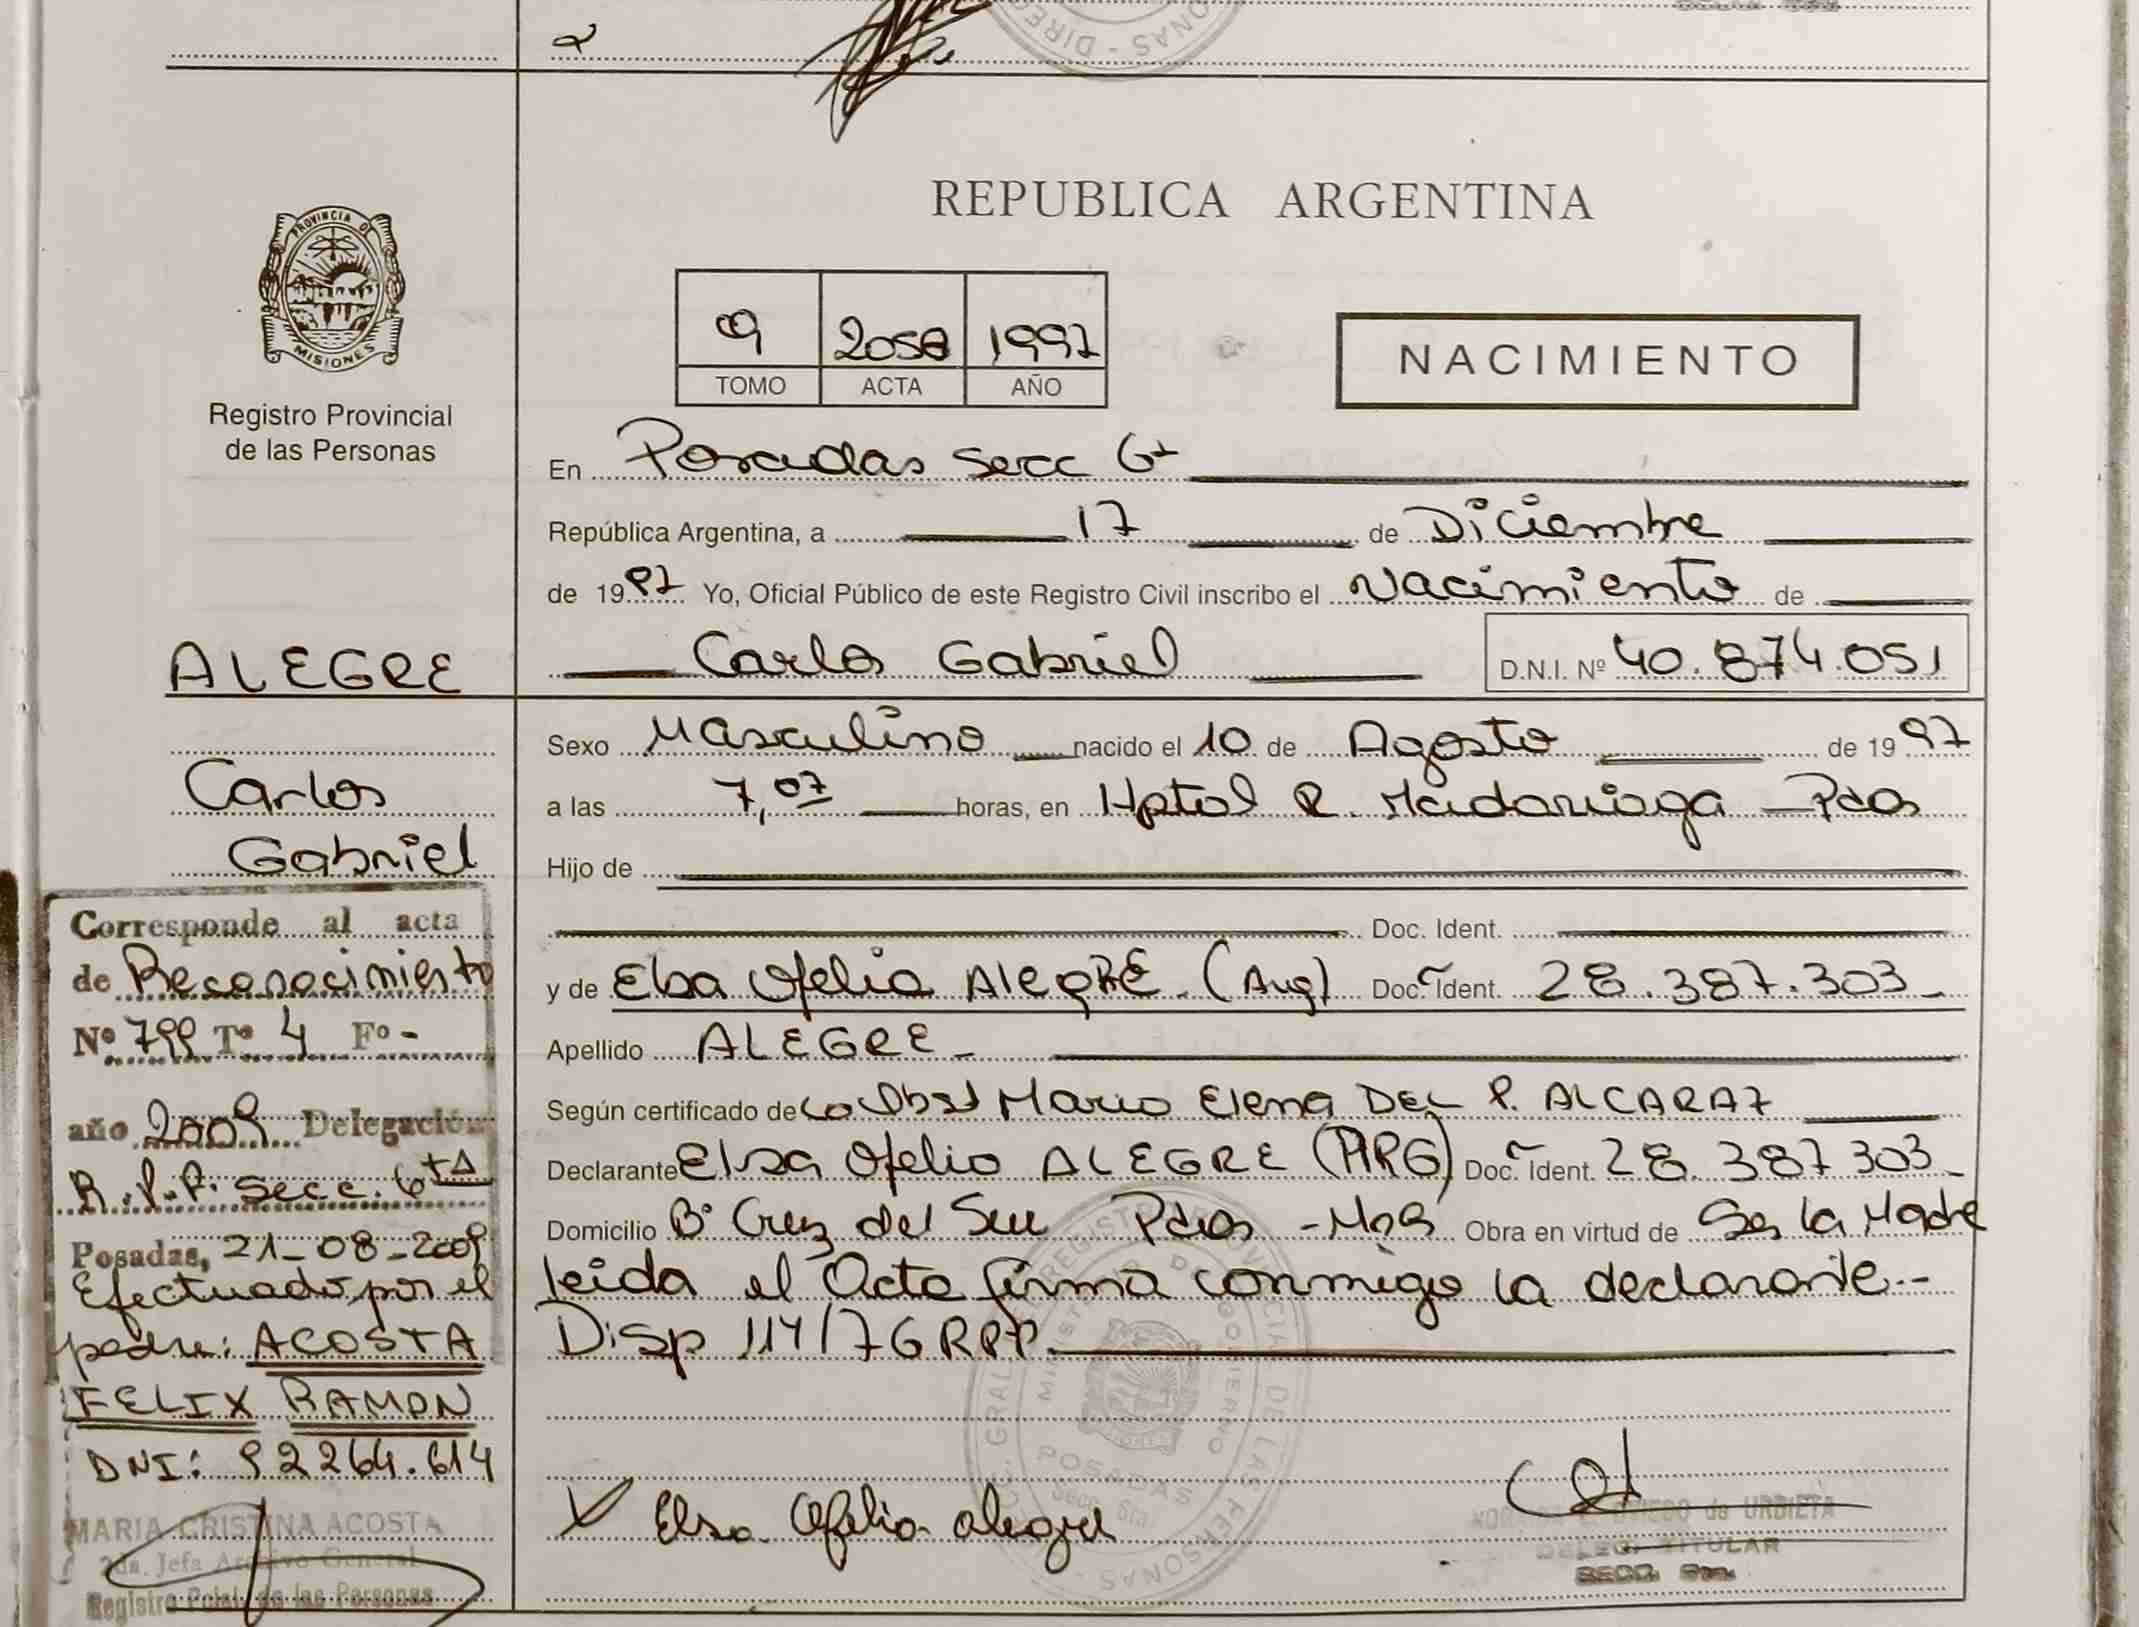 REPUBLICA ARGENTINA
PROVINCIA DE
MISIONES
Registro Provincial
de las Personas
9 2058 1997
TOMO ACTA AÑO
NACIMIENTO
En Posadas Secc 6ta
República Argentina, a 17 de Diciembre
de 1997 Yo, Oficial Público de este Registro Civil inscribo el Nacimiento de
Carlos Gabriel D.N.I. Nº 40.874.051
Sexo Masculino nacido el 10 de Agosto de 1997
a las 7,07 horas, en Hptal R. Madariaga - Pdas
Hijo de
Doc. Ident.
y de Elsa Ofelia AlegRE (Arg) Doc. Ident. 28.387.303
Apellido ALEGRE
Según certificado de La Obst Maria Elena DEL P. ALCARAZ
Declarante Elsa Ofelia ALEGRE (ARG) Doc. Ident. 28.387303
Domicilio Bº Cruz del Sur Pdas - Mns Obra en virtud de Ser la Madre
leida el Acta firma conmigo la declarante.-
Disp 114/76 RPP
X Elsa Ofelia alegre
OVIEDO de URBIETA
DELEG. TITULAR
SECC. 6ta.
ALEGRE
Carlos
Gabriel
Corresponde al acta
de Reconocimiento
Nº 799 Tº 4 Fº -
año 2009 Delegación
R.P.P. secc. 6ta
Posadas, 21-08-2009
Efectuado por el
padre: ACOSTA
FELIX RAMON
DNI: 92264.614
MARIA CRISTINA ACOSTA
2da. Jefa Archivo General
Registro Pcial. de las Personas